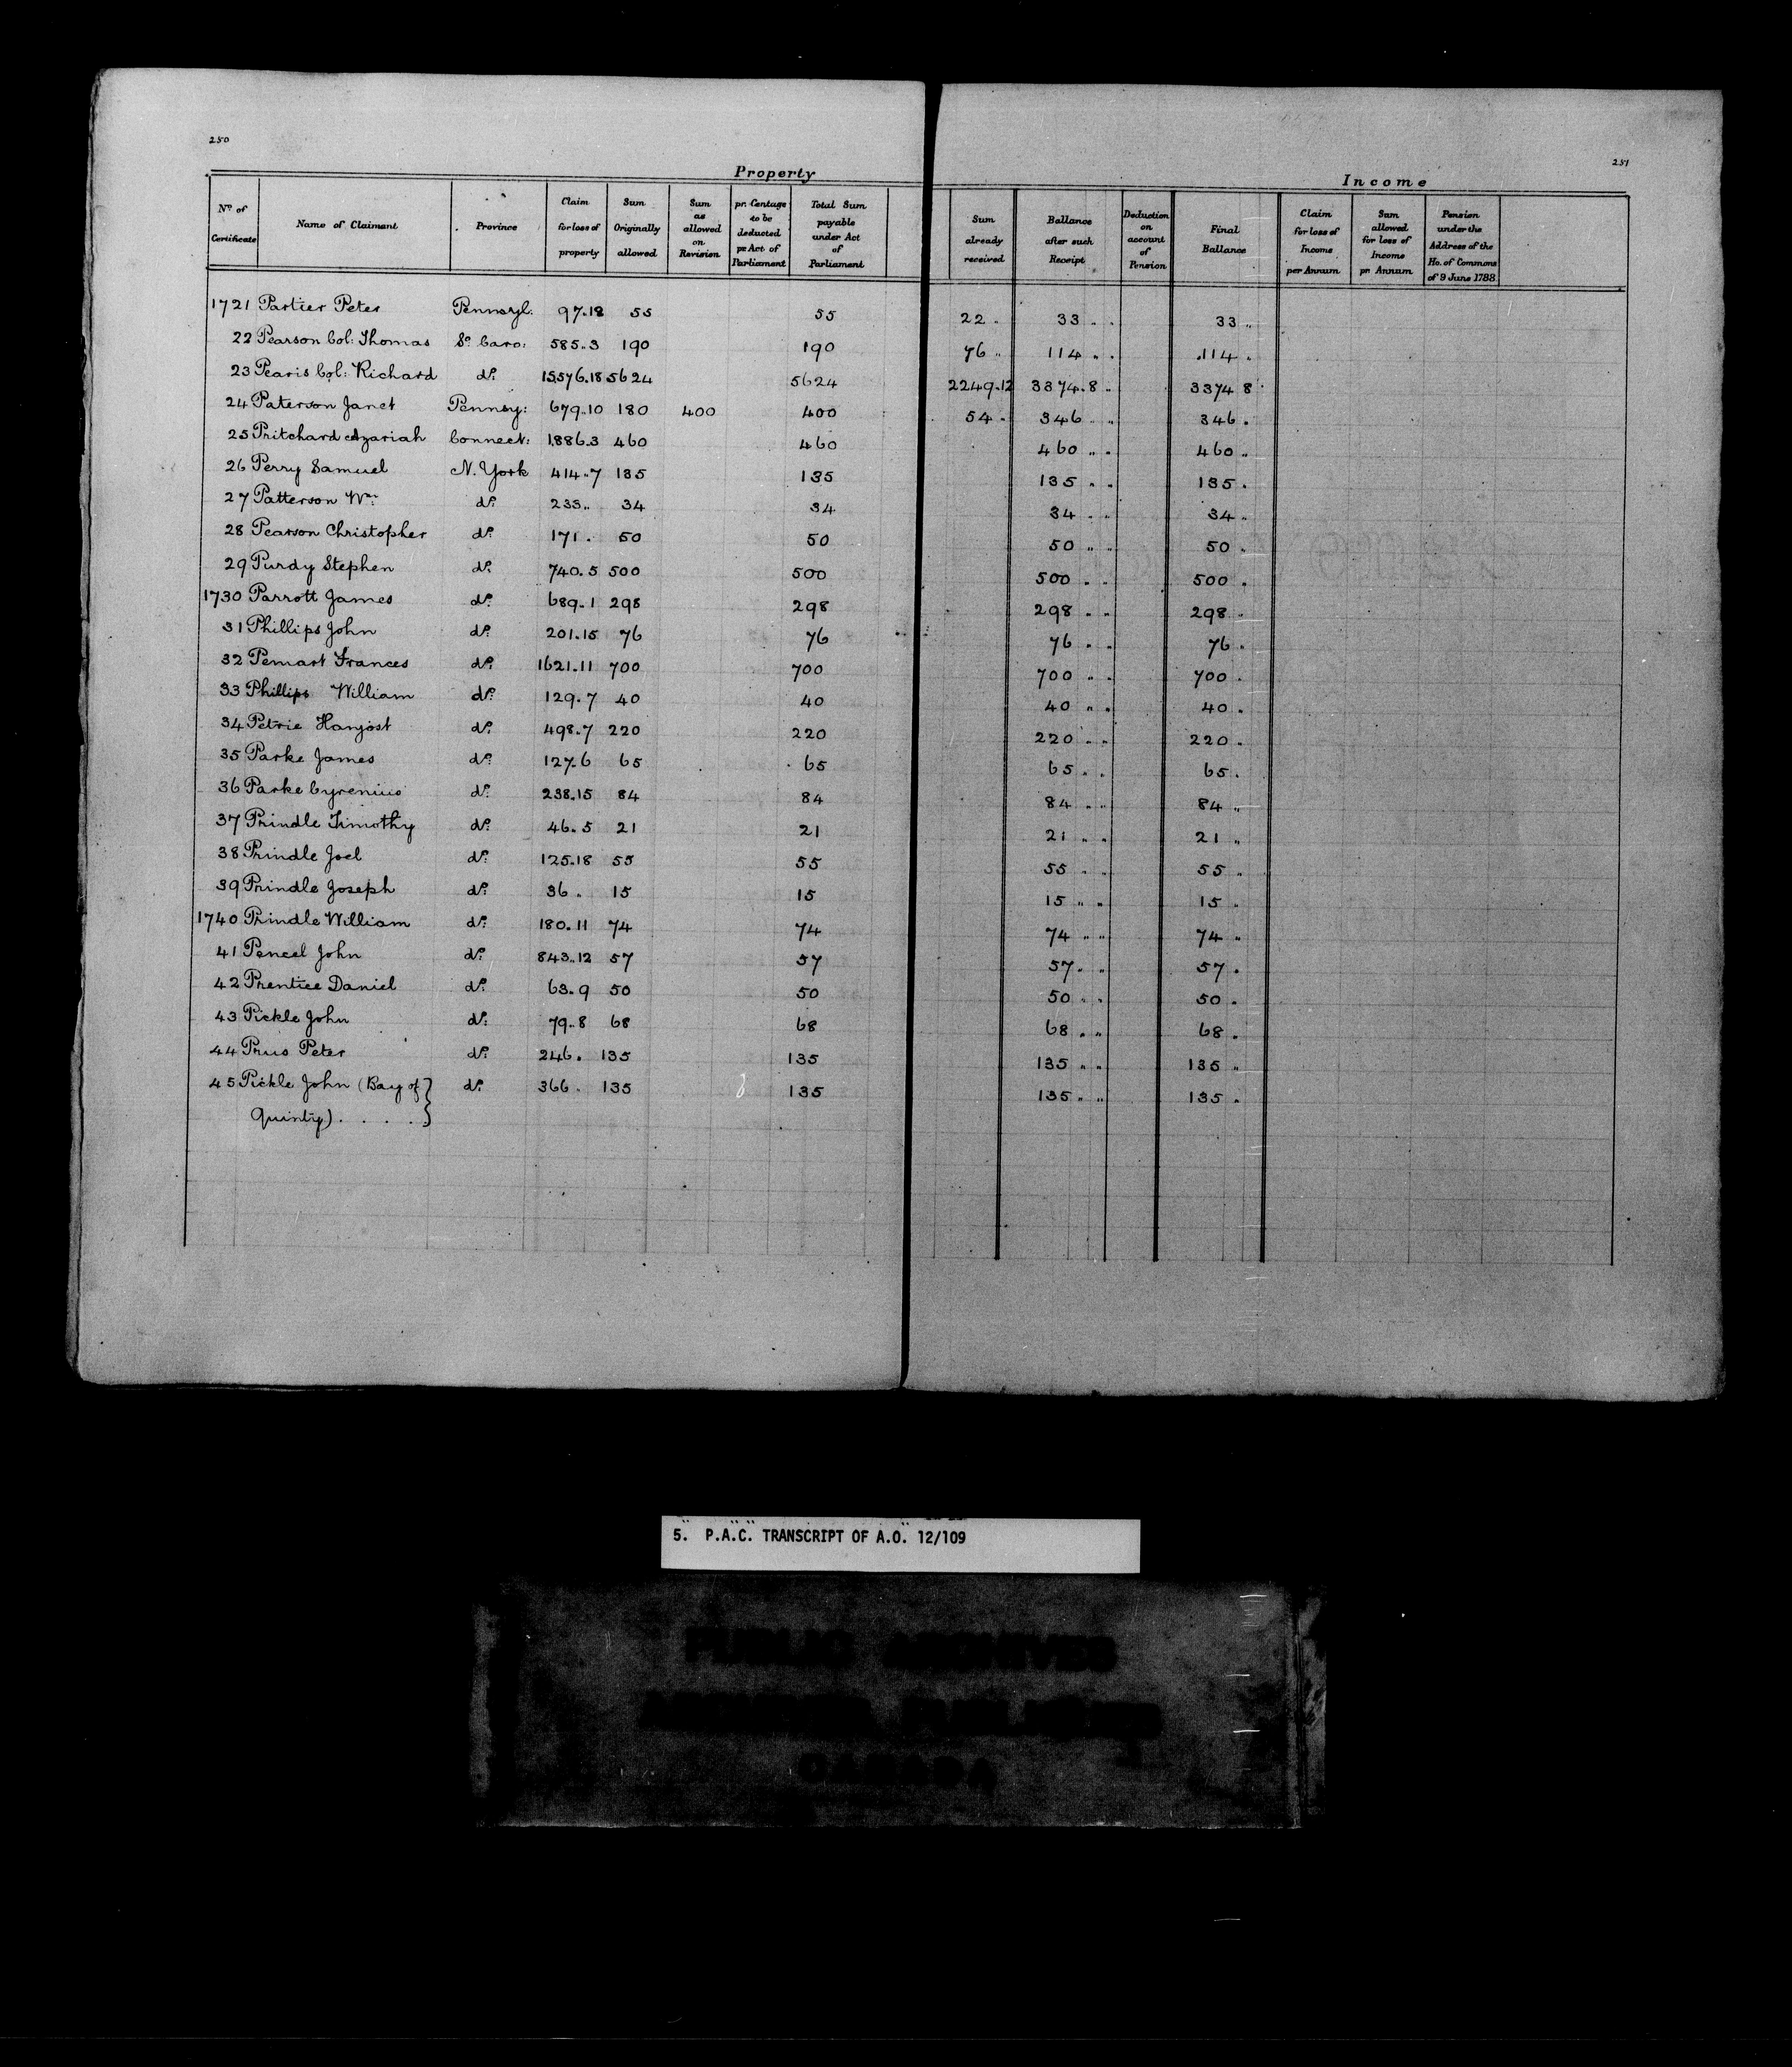 250
251
Property
Income
No. of Certificate | Name of Claimant | Province | Claim for loss of property | Sum Originally allowed | Sum as allowed on Revision | pr. Centage to be deducted pr Act of Parliament | Total Sum payable under Act of Parliament | Sum already received | Ballance after such Receipt | Deduction on account of Pension | Final Ballance | Claim for loss of Income per Annum | Sum allowed for loss of Income pr Annum | Pension under the Address of the Ho. of Commons of 9 June 1788
1721 Partier Peter Pennsyl: 97.18 55 55 22 „ 33 „ „ 33 „
22 Pearson Col: Thomas So. Caro: 585..3 190 190 76 „ 114 „ „ 114 „
23 Pearis Col: Richard do. 15,576.18 5624 5624 2249.12 3374.8 „ 3374 8
24 Paterson Janet Pennsy: 679..10 180 400 400 54 „ 346 „ 346 „
25 Pritchard Azariah Connect: 1,886.3 460 460 460 „ „ 460 „
26 Perry Samuel N. York 414..7 135 135 135 „ „ 135 „
27 Patterson Wm. do. 233.. 34 34 34 „ „ 34 „
28 Pearson Christopher do. 171 . 50 50 50 „ „ 50 „
29 Purdy Stephen do. 740.5 500 500 500 „ „ 500 „
1730 Parrott James do. 689..1 298 298 298 „ „ 298 „
31 Phillips John do. 201.15 76 76 76 „ „ 76 „
32 Pemart Frances do. 1621.11 700 700 700 „ „ 700 „
33 Phillips William do. 129.7 40 40 40 „ „ 40 „
34 Petrie Hanjost do. 498.7 220 220 220 „ „ 220 „
35 Parke James do. 127.6 65 65 65 „ „ 65 „
36 Parke Cyrenius do. 238.15 84 84 84 „ „ 84 „
37 Prindle Timothy do. 46.5 21 21 21 „ „ 21 „
38 Prindle Joel do. 125.18 55 55 55 „ „ 55 „
39 Prindle Joseph do. 36 . 15 15 15 „ „ 15 „
1740 Prindle William do. 180.11 74 74 74 „ „ 74 „
41 Pencel John do. 843..12 57 57 57 „ „ 57 „
42 Prentice Daniel do. 63.9 50 50 50 „ „ 50 „
43 Pickle John do. 79..8 68 68 68 „ „ 68 „
44 Prus Peter do. 246 . 135 135 135 „ „ 135 „
45 Pickle John (Bay of do. 366 . 135 135 135 „ „ 135 „
Quinty) . . . .
5. P.A.C. TRANSCRIPT OF A.O. 12/109
PUBLIC ARCHIVES
CANADA